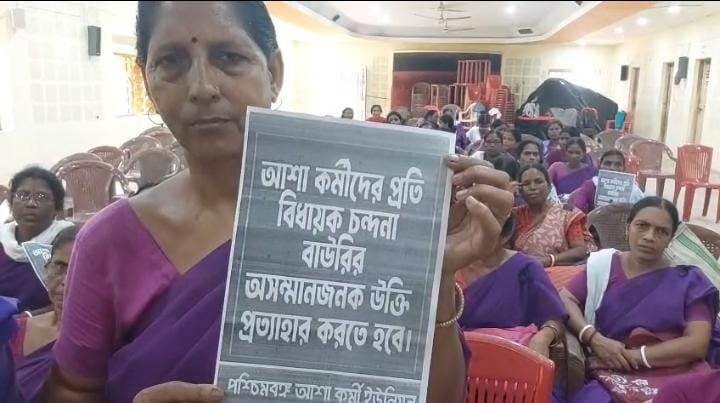 আশা কর্মীদের প্রতি
বিধায়ক চন্দনা
বাউরির
অসম্মানজনক উক্তি
প্রত্যাহার করতে হবে।
পশ্চিমবঙ্গ আশা কর্মী ইউনিয়ন